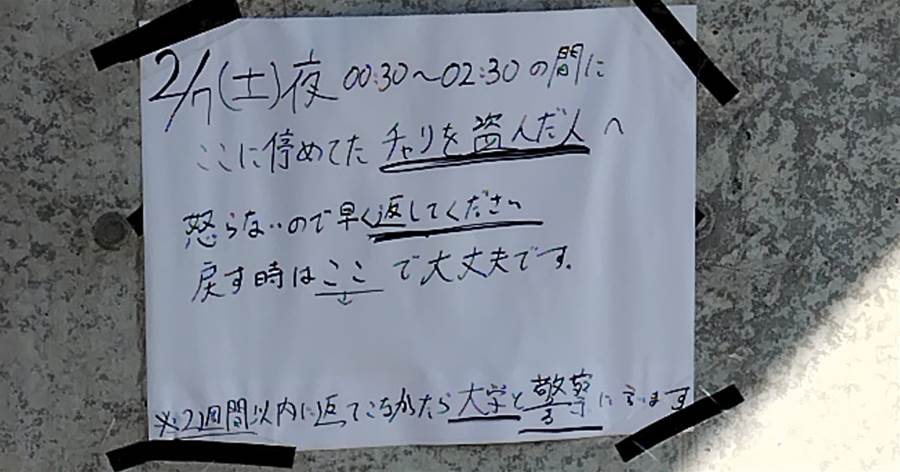 2/7(土)夜 00:30～02:30の間に
ここに停めてた チャリを盗んだ人へ
怒らないので早く返してください
戻す時はここで大丈夫です。
※2週間以内に返てこなかったら 大学と警察に言います